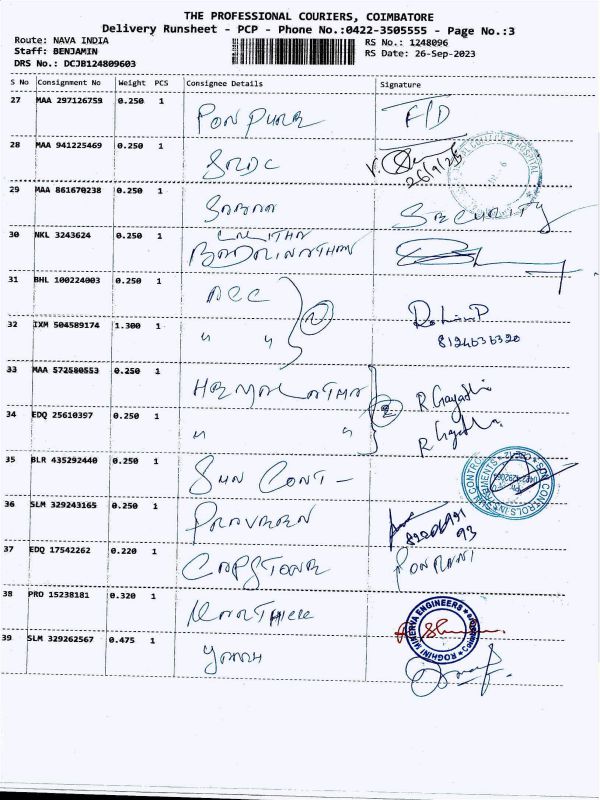 THE PROFESSIONAL COURIERS, COIMBATORE
Delivery Runsheet - PCP - Phone No.:0422-3505555 - Page No.:3
Route: NAVA INDIA
Staff: BENJAMIN
DRS No.: DCJB124809603
RS No.: 1248096
RS Date: 26-Sep-2023
S No Consignment No Weight PCS Consignee Details Signature
27 MAA 297126759 0.250 1 PONPURE F/D
28 MAA 941225469 0.250 1 SRDC
29 MAA 861670238 0.250 1 SECURITY
30 NKL 3243624 0.250 1 LALITHA BADRINATHAN
31 BHL 100224003 0.250 1 ACC 2
32 IXM 504589174 1.300 1 " "
33 MAA 572580553 0.250 1 HEMALATHA 2 R Gayathri
34 EDQ 25610397 0.250 1 " " R Gayathri
35 BLR 435292440 0.250 1 SUN CONT-
36 SLM 329243165 0.250 1 PRAVEEN
37 EDQ 17542262 0.220 1 CAPSTONE PONMANI
38 PRO 15238181 0.320 1 KARTHICK
ROGHINI MINERVA ENGINEERS
39 SLM 329262567 0.475 1